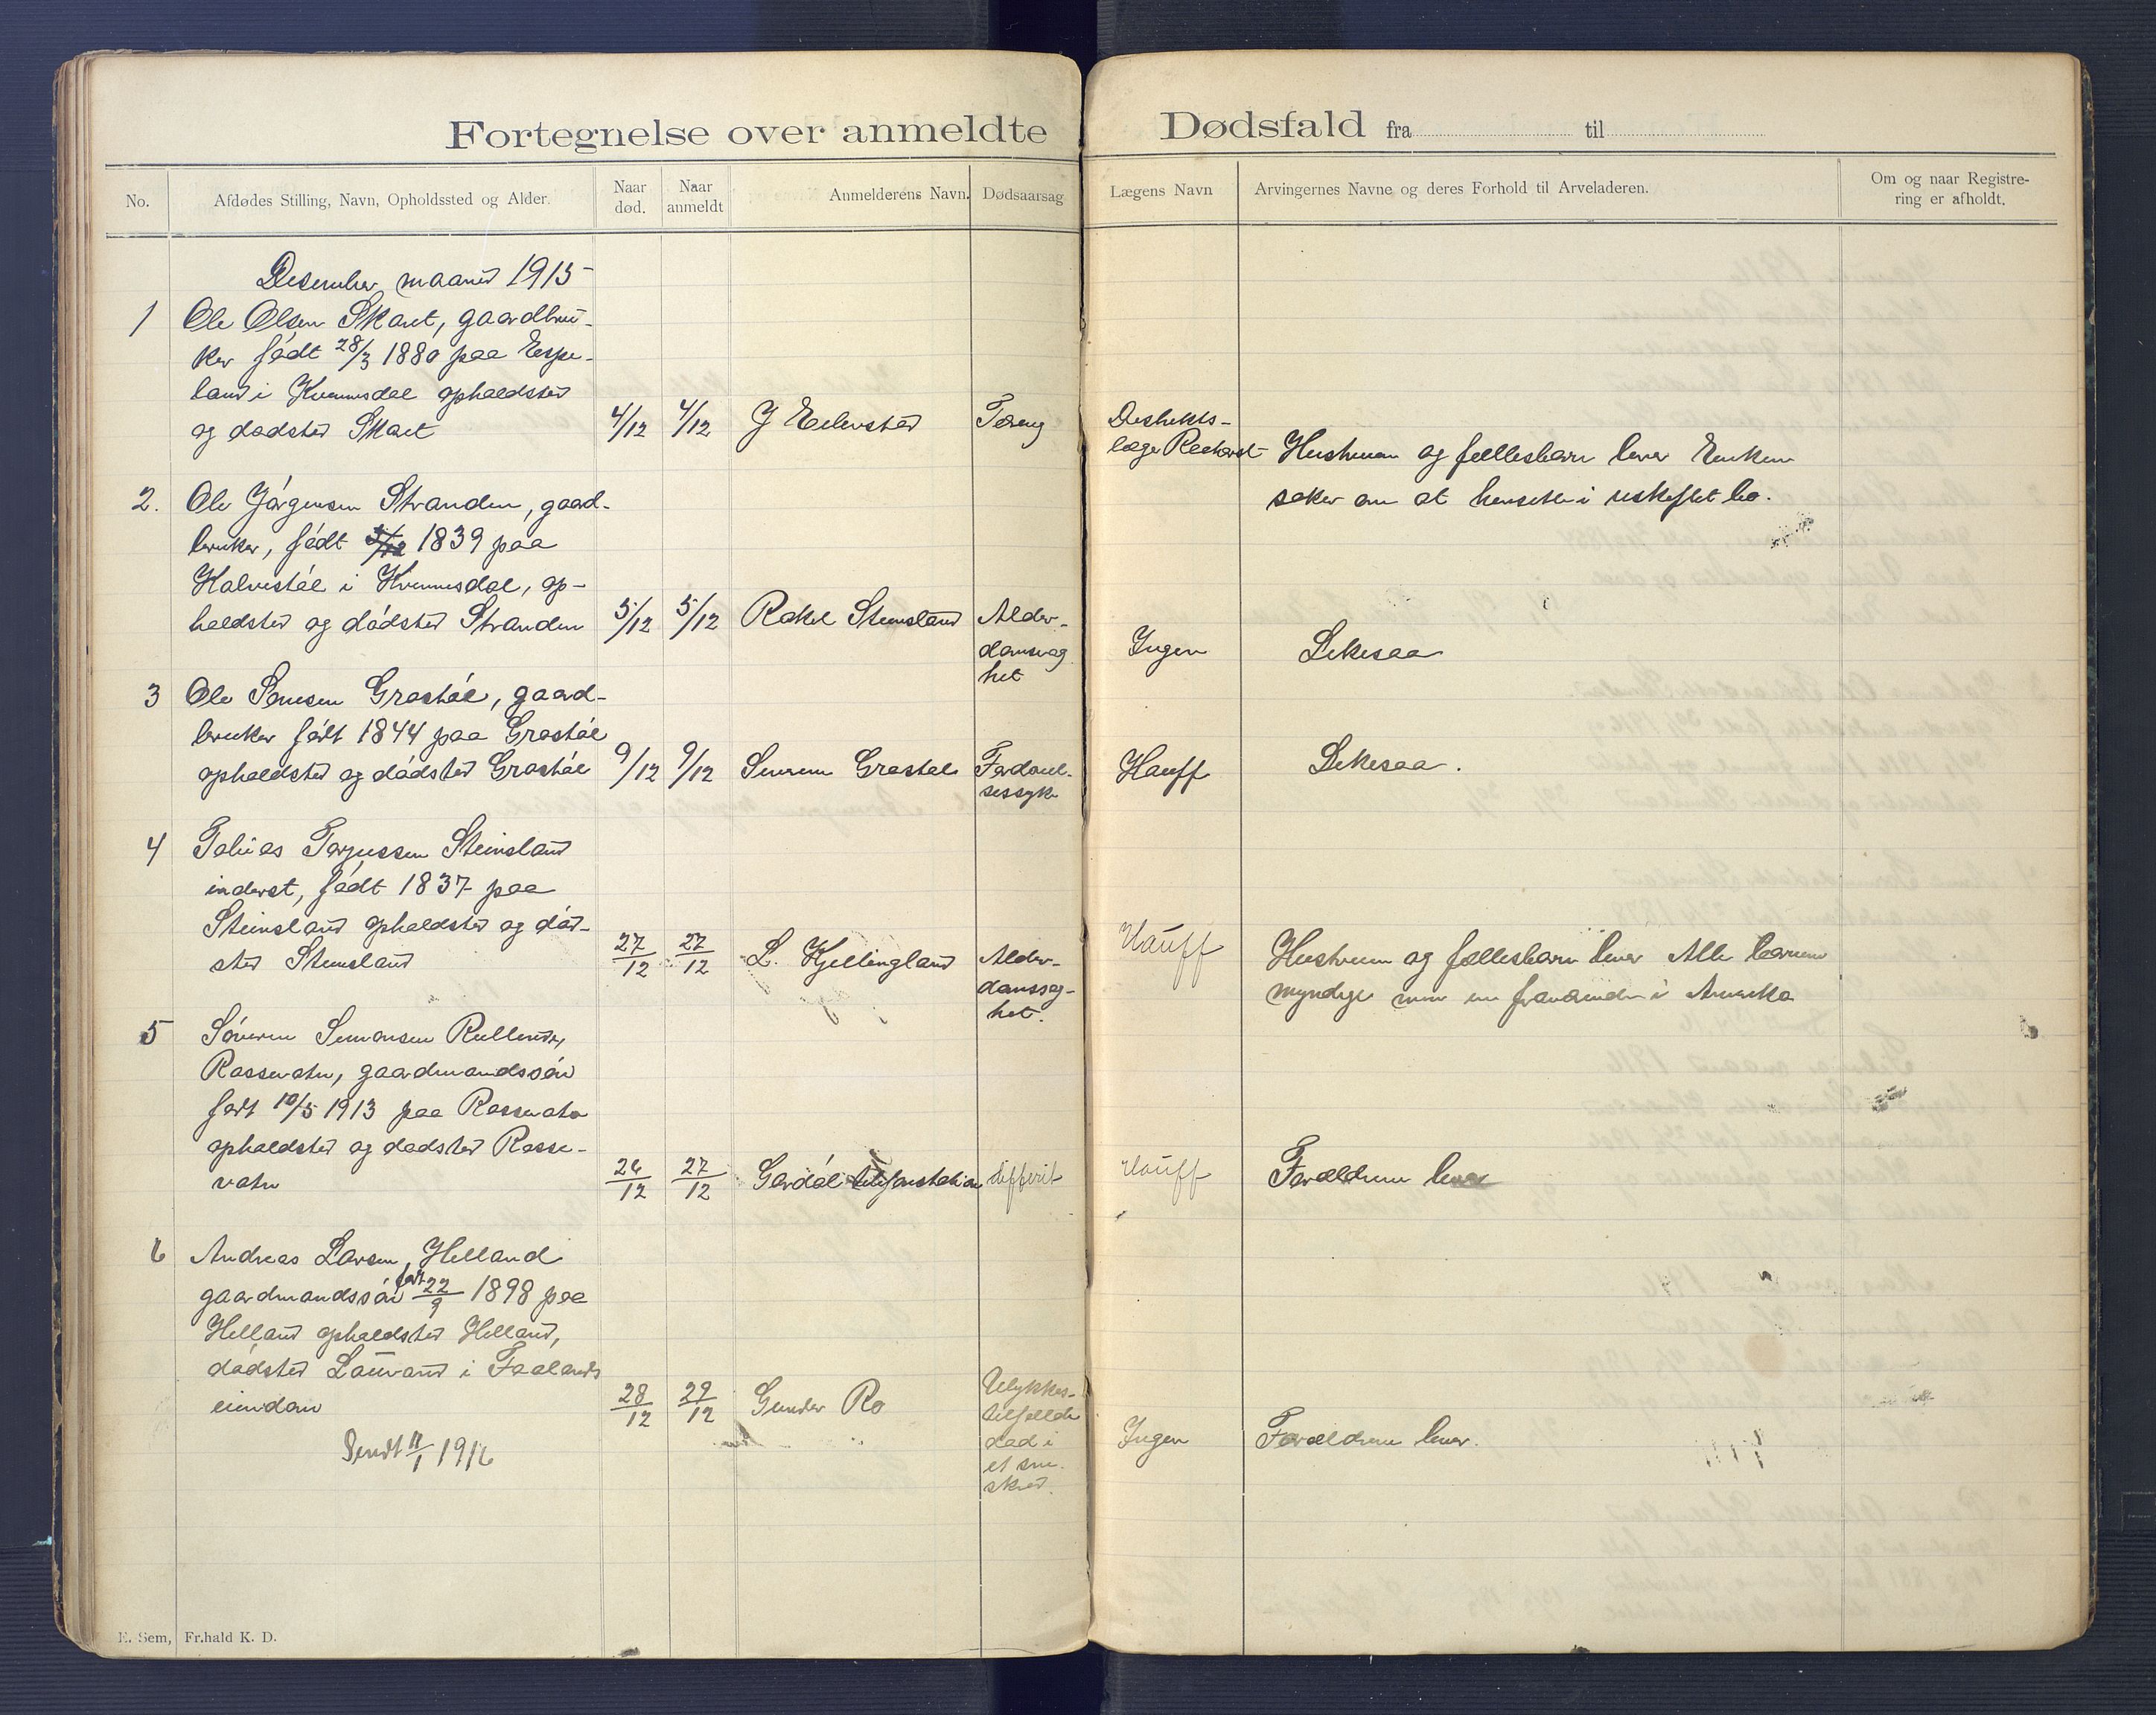 Fortegnelse over anmeldte Dødsfald fra til
No.
Afdødes Stilling, Navn, Opholdssted og Alder.
Naar død.
Naar anmeldt
Anmelderens Navn.
Dødsaarsag
Lægens Navn
Arvingernes Navne og deres Forhold til Arveladeren.
Om og naar Registre-
ring er afholdt.
Desember maaned 1915
1 Ole Olsen Skaret, gaardbru-
ker født 28/3 1880 paa Espe-
land i Kvinnesdal opholdsted
og dødsted Skaret 4/12 4/12 J Eilevsted Tæring
Distrikts-
læge
Hustruen og fællesbarn lever Enken
søker om at hensitte i uskiftet bo.
2. Ole Jørgensen Stranden, gaard-
bruker, født 5/12 1839 paa
Kalvestøl i Kvinnesdal, op-
holdsted og dødsted Stranden 5/12 5/12 Rakel Steinsland Alder-
domsvag
het
Ingen Likesaa
3 Ole Sørensen Grostøl, gaard-
bruker født 1844 paa Grostøl
opholdsted og dødsted Grostøl 9/12 9/12 Severin Grostøl Fordøiel-
sessyke
Hauff Likesaa.
4 Tobias Torjussen Steinsland
inderst, født 1837 paa
Steinsland opholdsted og død-
sted Steinsland 27/12 27/12 L. Kjellingland Alder-
domssvag-
het.
Hauff Hustruen og fællesbarn lever Alle barnene
myndige men en fraværende i Amerika
5 Søveren Simonsen
Rossevatn, gaardmandssøn
født 10/5 1913 paa Rossevatn
opholdsted og dødsted Rosse-
vatn 26/12 27/12 Gordøl telefonstation difterit
Hauff Forældrene lever
6 Andreas Larsen, Helland
gaardmandssøn født 22/9 1898 paa
Helland opholdsted Helland,
dødsted i
eiendom 28/12 29/12 Gunder Ro Ulykkes-
tilfælde
død i
et sne-
skred.
Ingen Forældrene lever.
Sendt 11/1 1916
E. Sem, Fr.hald K. D.